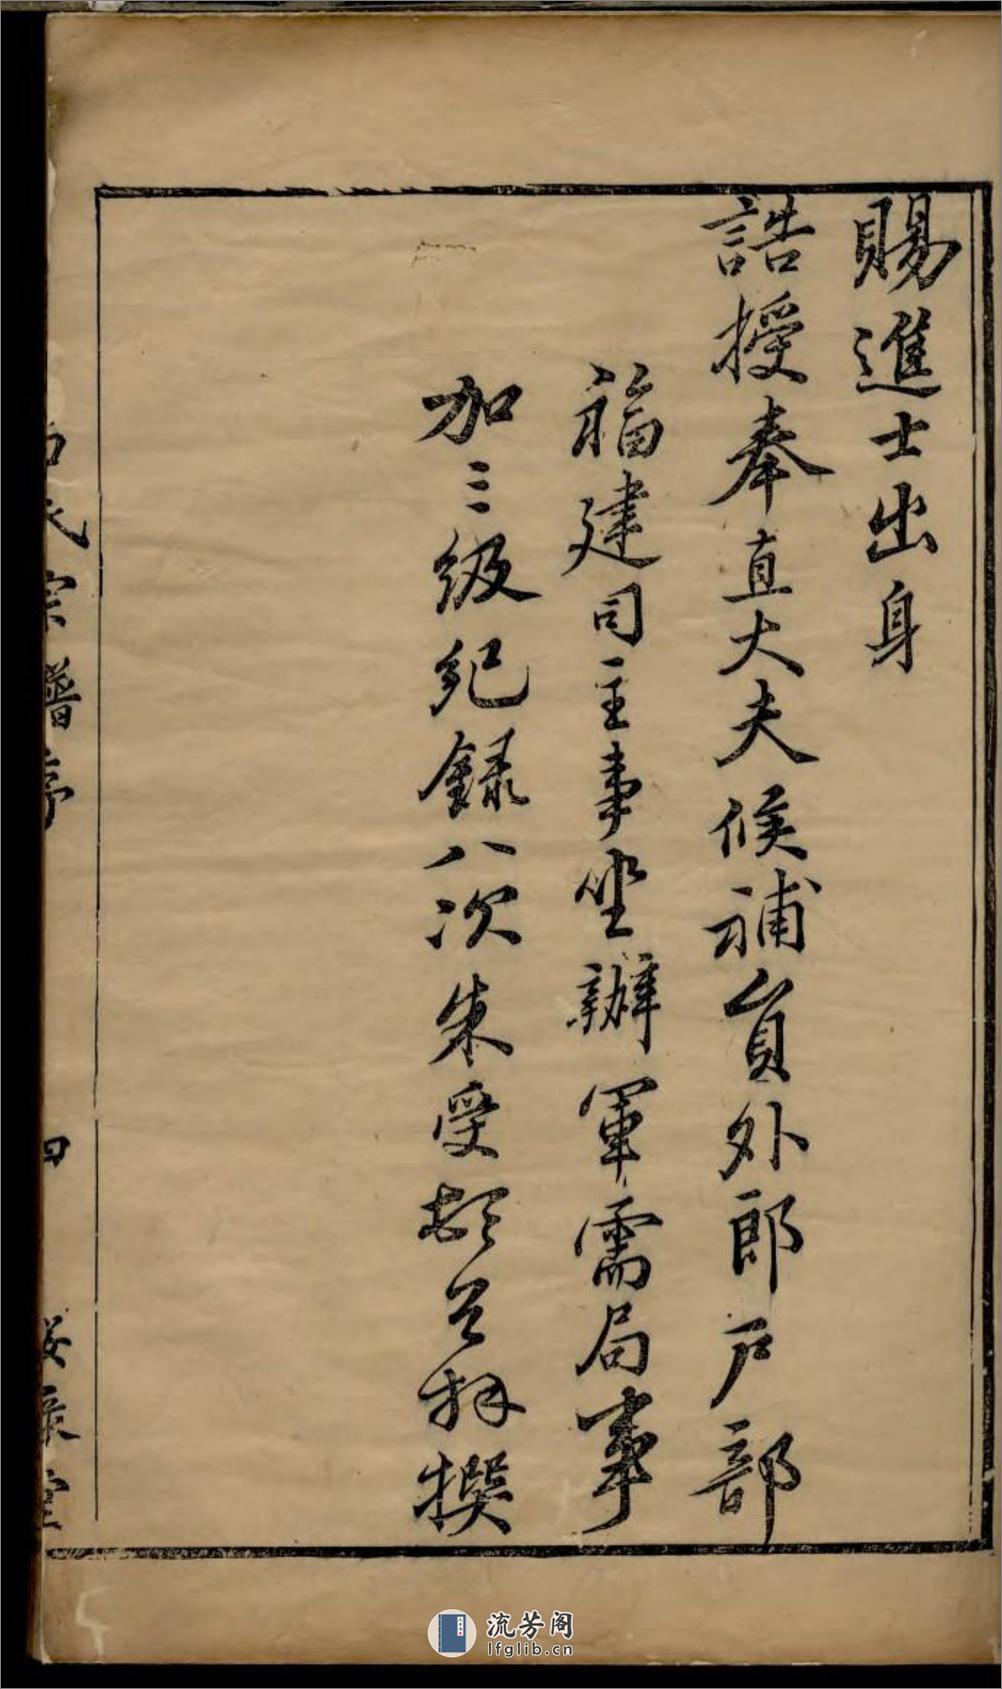 賜進士出身
誥授奉直大夫候補員外郎戶部
福建司主事坐辦軍需局事
加三級紀錄八次朱受頓首拜撰
氏宗譜序
四
堂
流芳阁
lfglib.cn